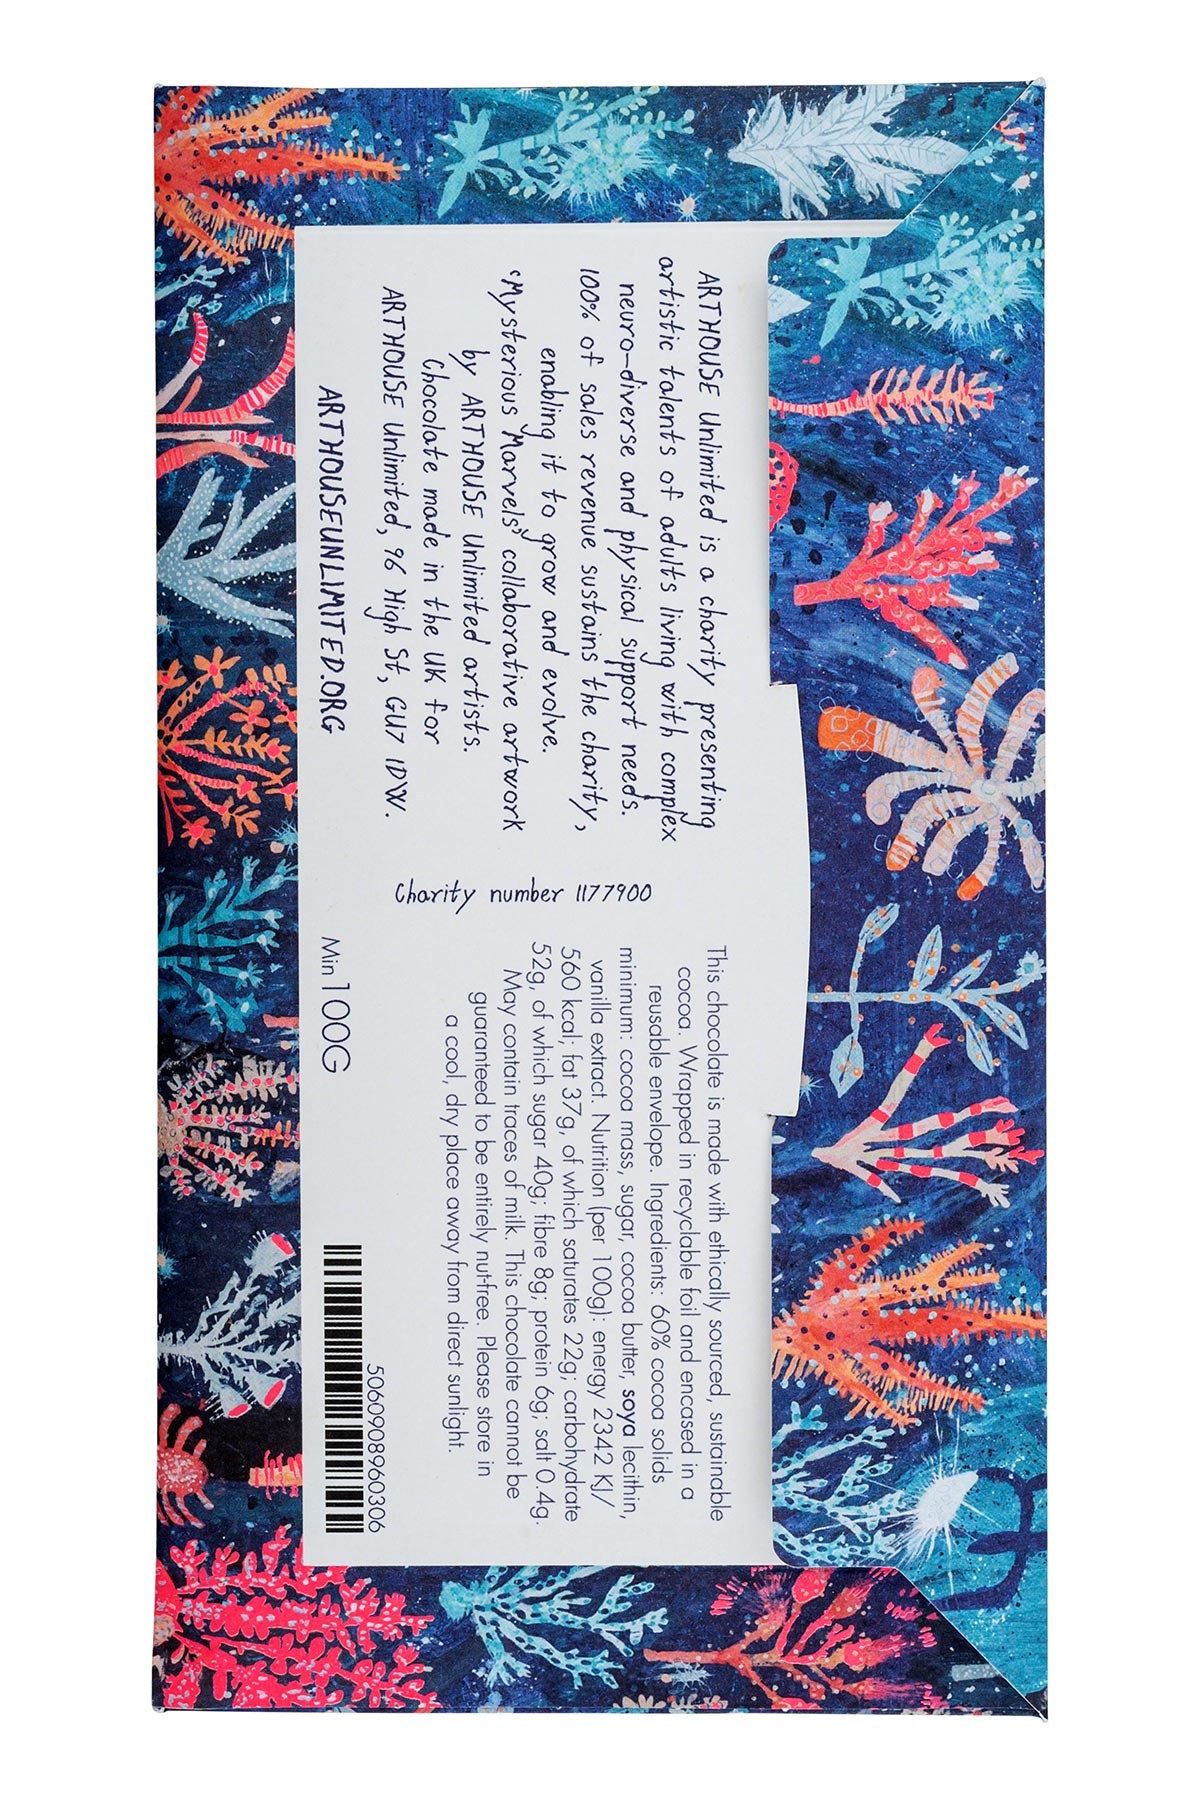 ARTHOUSE Unlimited is a charity presenting
artistic talents of adults living with complex
neuro-diverse and physical support needs.
100% of sales revenue sustains the charity,
enabling it to grow and evolve.
'Mysterious Marvels' collaborative artwork
by ARTHOUSE Unlimited artists.
Chocolate made in the UK for
ARTHOUSE Unlimited, 96 High St, GU7 1DW.
ARTHOUSEUNLIMITED.ORG
Charity number 1177900
This chocolate is made with ethically sourced, sustainable
cocoa. Wrapped in recyclable foil and encased in a
reusable envelope. Ingredients: 60% cocoa solids
minimum: cocoa mass, sugar, cocoa butter, soya lecithin,
vanilla extract. Nutrition (per 100g): energy 2342 KJ/
560 kcal; fat 37g, of which saturates 22g; carbohydrate
52g, of which sugar 40g; fibre 8g; protein 6g; salt 0.4g.
May contain traces of milk. This chocolate cannot be
guaranteed to be entirely nut-free. Please store in
a cool, dry place away from direct sunlight.
Min 100G
5060908960306